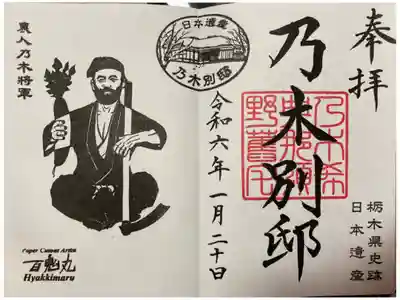 奉拝
乃木希
典那須
野舊宅
乃木別邸
栃木県史跡
日本遺産
日本遺産
乃木別邸
令和六年一月二十日
農人乃木将軍
Paper Cutout Artist
百鬼丸
Hyakkimaru